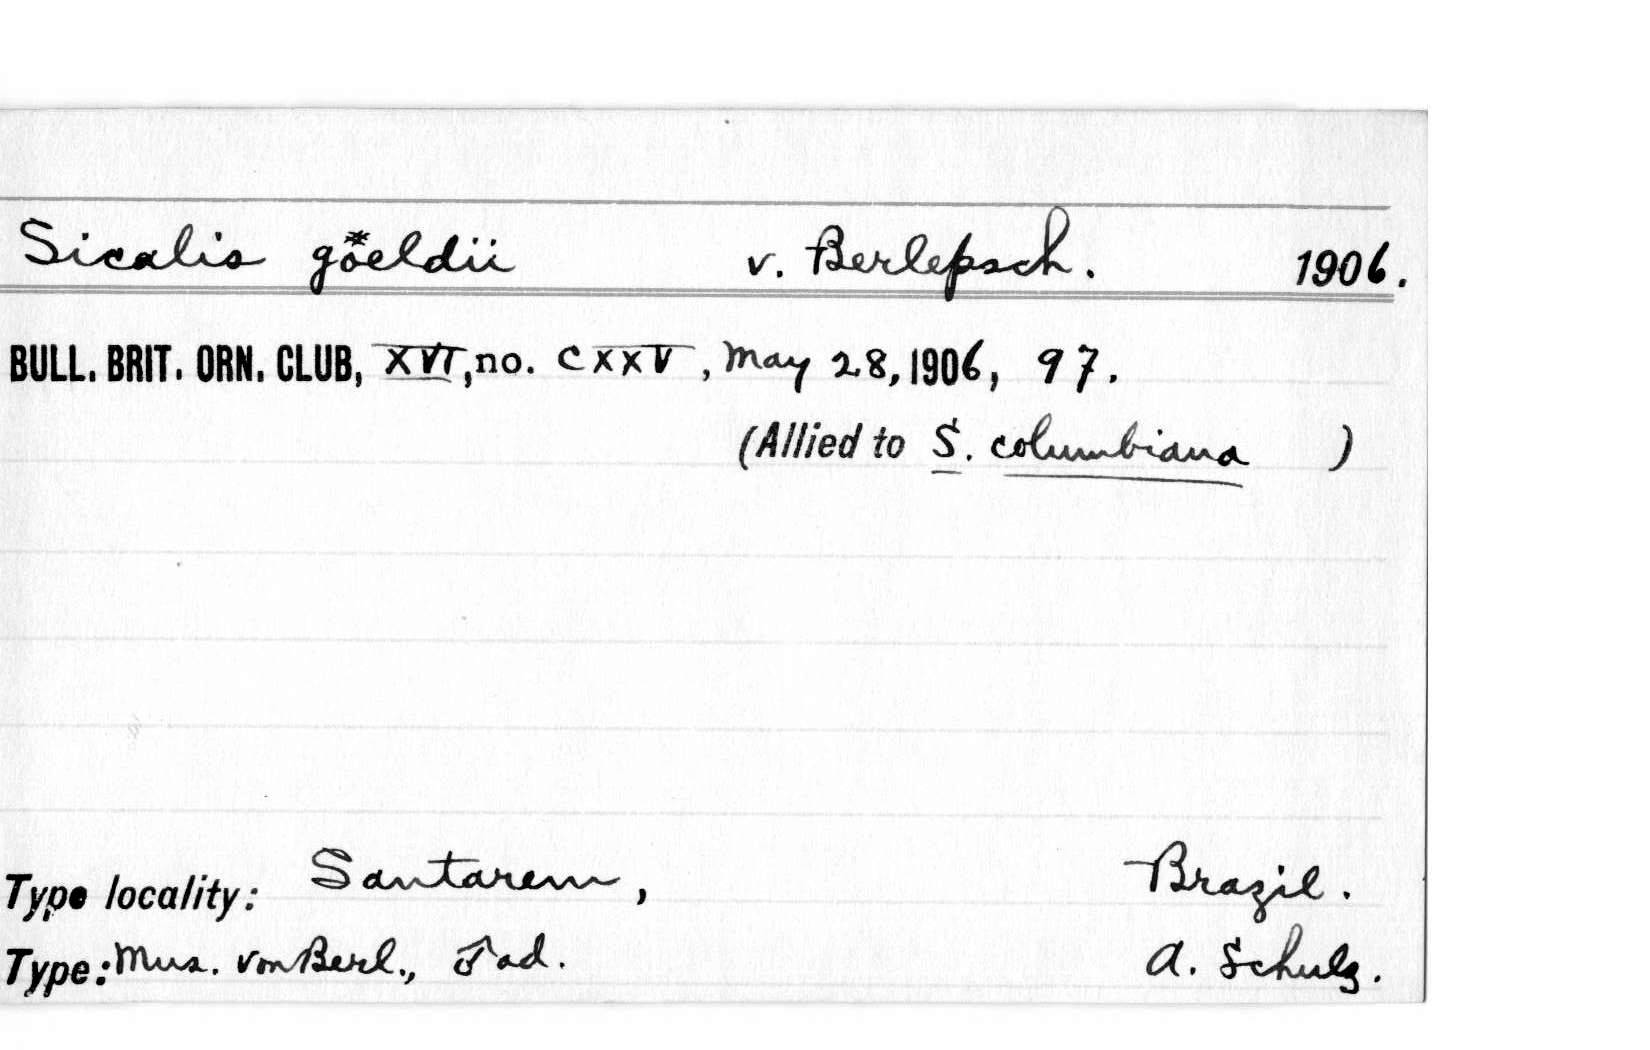 Sicalis göeldii v. Berlepsch. 1906.
BULL. BRIT. ORN. CLUB, XVI, no. CXXV, May 28, 1906, 97.
(Allied to S. columbiana )
Type locality: Santarem, Brazil.
Type: Mus. von Berl., ♂ ad. A. Schulz.